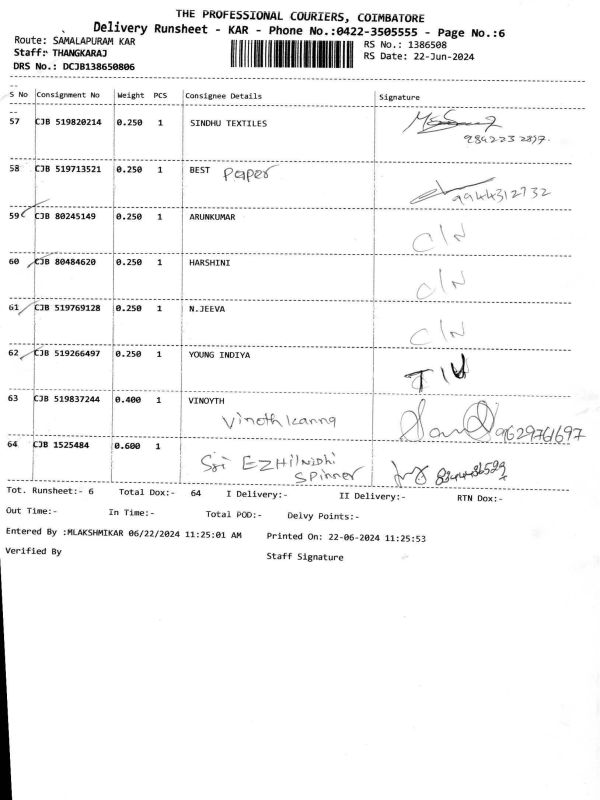 THE PROFESSIONAL COURIERS, COIMBATORE
Delivery Runsheet - KAR - Phone No.:0422-3505555 - Page No.:6
Route: SAMALAPURAM KAR RS No.: 1386508
Staff: THANGKARAJ RS Date: 22-Jun-2024
DRS No.: DCJB138650806
S No Consignment No Weight PCS Consignee Details Signature
57 CJB 519820214 0.250 1 SINDHU TEXTILES
58 CJB 519713521 0.250 1 BEST paper
9944312732
59 CJB 80245149 0.250 1 ARUNKUMAR
C/N
60 CJB 80484620 0.250 1 HARSHINI
C/N
61 CJB 519769128 0.250 1 N.JEEVA
C/N
62 CJB 519266497 0.250 1 YOUNG INDIYA
63 CJB 519837244 0.400 1 VINOYTH
Vinothkanna 9629761697
64 CJB 1525484 0.600 1
Sri EZHilNiDhi
Spinner
Tot. Runsheet:- 6 Total Dox:- 64 I Delivery:- II Delivery:- RTN Dox:-
Out Time:- In Time:- Total POD:- Delvy Points:-
Entered By :MLAKSHMIKAR 06/22/2024 11:25:01 AM Printed On: 22-06-2024 11:25:53
Verified By Staff Signature